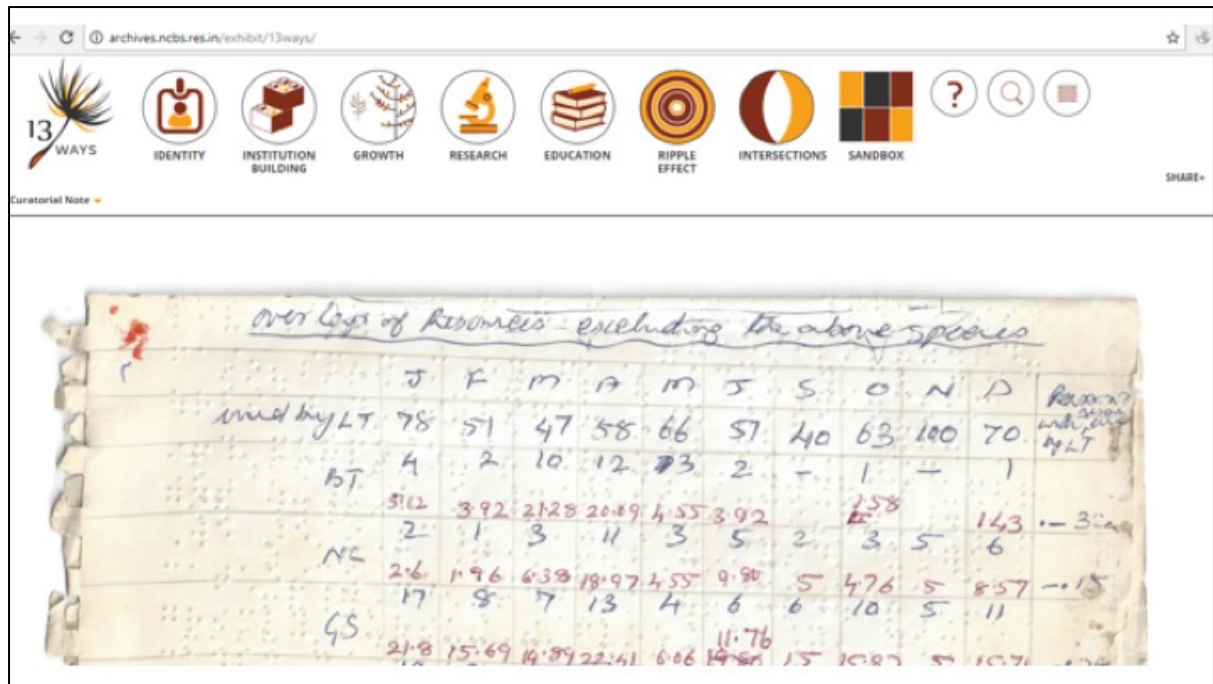 archives.ncbs.res.in/exhibit/13ways/
13
WAYS
IDENTITY
INSTITUTION
BUILDING
GROWTH
RESEARCH
EDUCATION
RIPPLE
EFFECT
INTERSECTIONS
SANDBOX
?
SHARE+
Curatorial Note
over laps of Resources - excluding the above species
J F M A M J S O N D
used by LT 78 51 47 58 66 51 40 63 100 70
by LT
BT 4 2 10 12 3 2 - 1 - 1
5.12 3.92 21.28 20.69 4.55 3.92 1.58 1.43
NC 2 1 3 11 3 5 2 3 5 6
2.6 1.96 6.38 18.97 4.55 9.80 5 4.76 5 8.57 - 15
GS 17 8 7 13 4 6 6 10 5 11
11.76
21.8 15.69 14.89 22.41 6.06 15 15.87 5 15.71